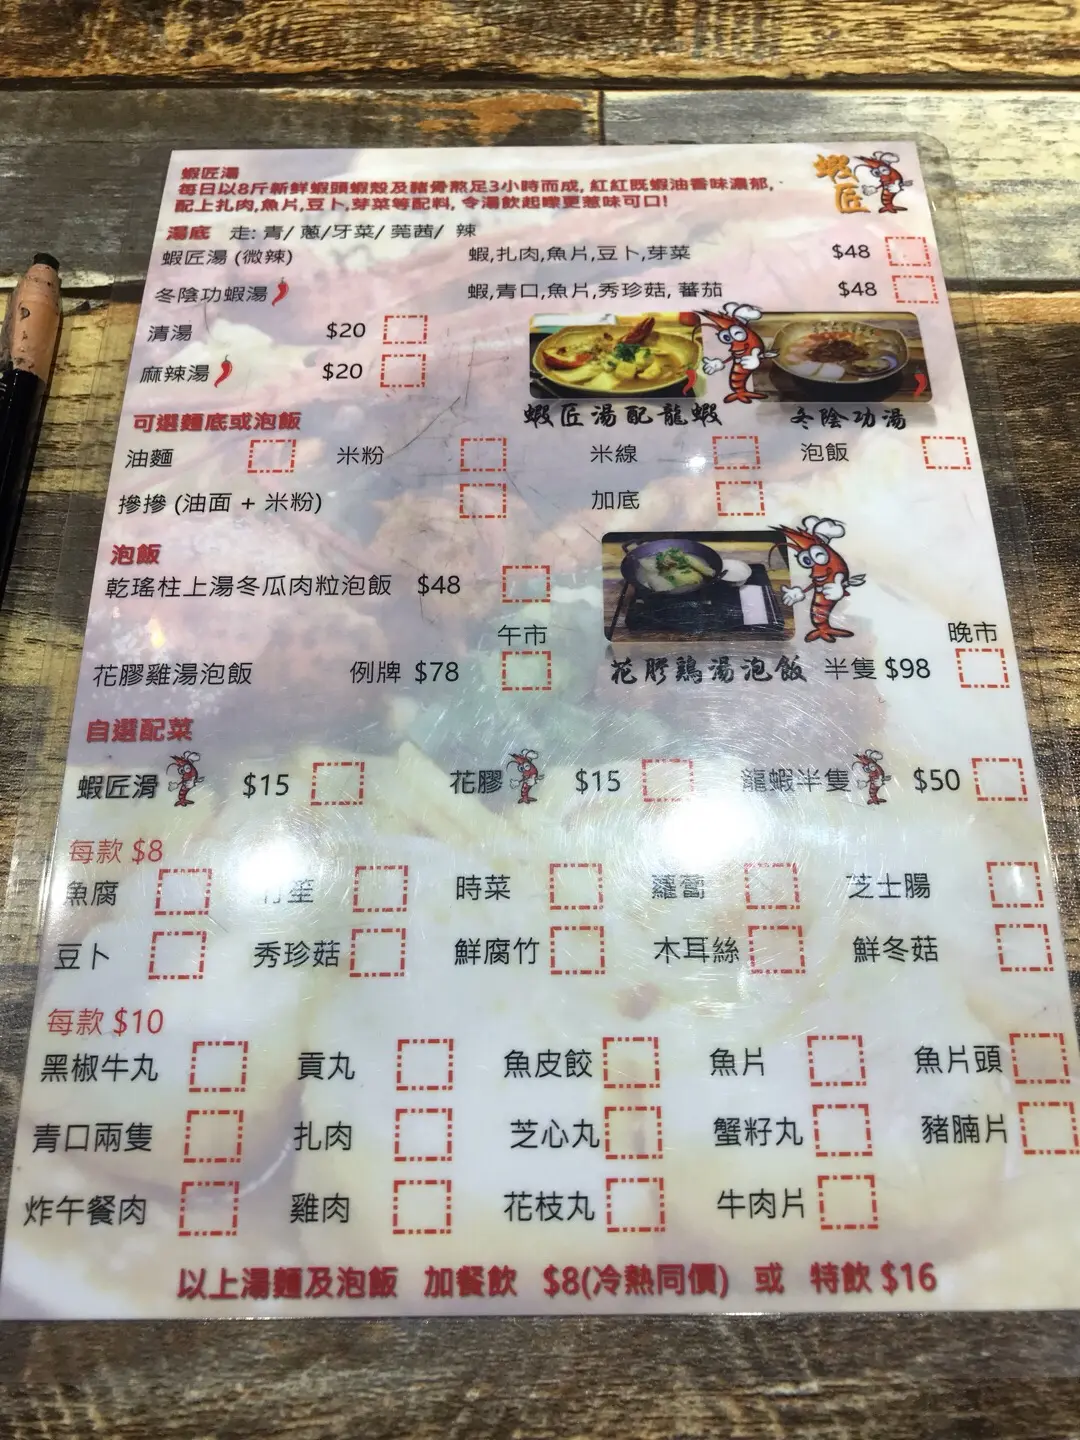 蝦匠湯
每日以8斤新鮮蝦頭蝦殼及豬骨熬足3小時而成, 紅紅既蝦油香味濃郁,
配上扎肉,魚片,豆卜,芽菜等配料, 令湯飲起嚟更惹味可口!
蝦匠
湯底 走: 青/ 蔥/牙菜/ 莞茜/ 辣
蝦匠湯 (微辣) 蝦,扎肉,魚片,豆卜,芽菜 $48
冬陰功蝦湯 蝦,青口,魚片,秀珍菇, 蕃茄 $48
清湯 $20
麻辣湯 $20
蝦匠湯配龍蝦 冬陰功湯
可選麵底或泡飯
油麵 米粉 米線 泡飯
摻摻 (油面 + 米粉) 加底
泡飯
乾瑤柱上湯冬瓜肉粒泡飯 $48
午市 晚市
花膠雞湯泡飯 例牌 $78 花膠鶏湯泡飯 半隻 $98
自選配菜
蝦匠滑 $15 花膠 $15 龍蝦半隻 $50
每款 $8
魚腐 竹笙 時菜 蘿蔔 芝士腸
豆卜 秀珍菇 鮮腐竹 木耳絲 鮮冬菇
每款 $10
黑椒牛丸 貢丸 魚皮餃 魚片 魚片頭
青口兩隻 扎肉 芝心丸 蟹籽丸 豬腩片
炸午餐肉 雞肉 花枝丸 牛肉片
以上湯麵及泡飯 加餐飲 $8(冷熱同價) 或 特飲 $16